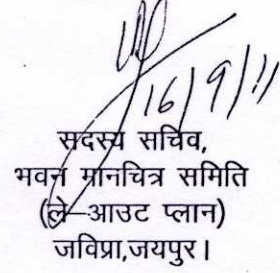 16/9/11
सदस्य सचिव,
भवन मानचित्र समिति
(ले-आउट प्लान)
जविप्रा,जयपुर।